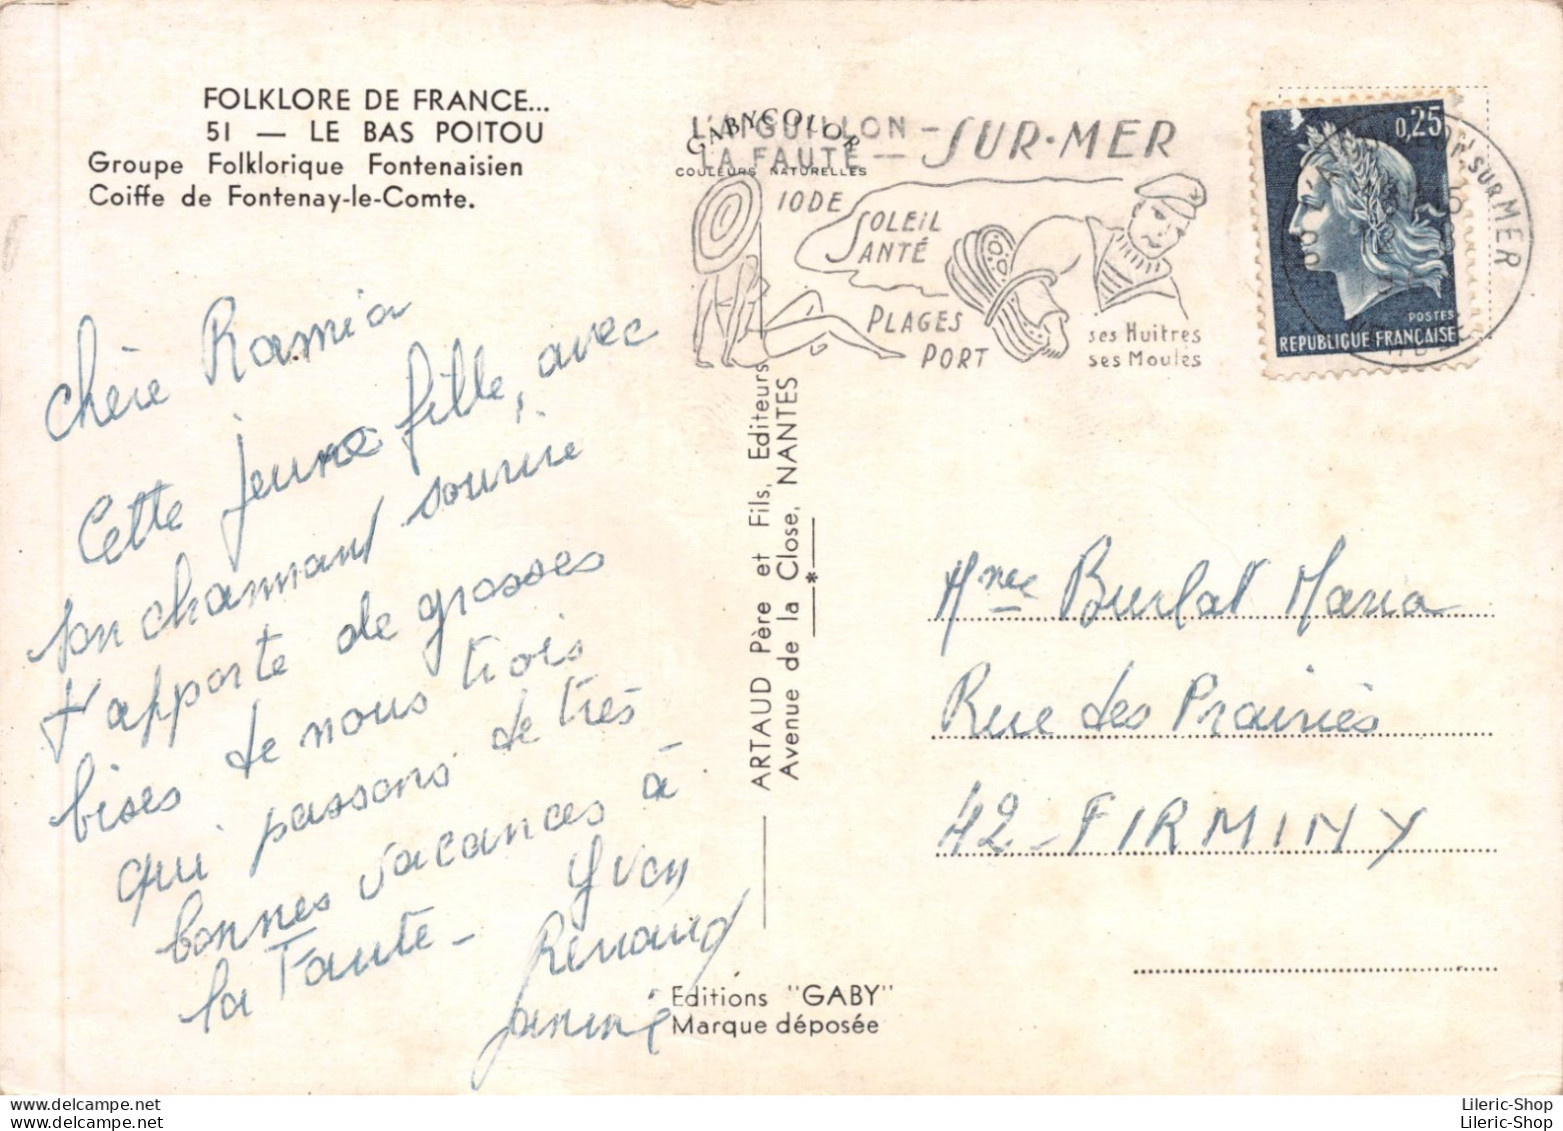 FOLKLORE DE FRANCE...
51 — LE BAS POITOU
Groupe Folklorique Fontenaisien
Coiffe de Fontenay-le-Comte.
Chère
Cette jeune fille, avec
son charmant sourire
t'apporte de grosses
bises de nous trois
qui passons de très
bonnes vacances à
la Faute -
Yvon
Renaud
Janine
GABYCOLOR
COULEURS NATURELLES
L'AIGUILLON -
LA FAUTE -
SUR·MER
IODE
SOLEIL
SANTÉ
PLAGES
PORT
ses Huitres
ses Moules
0,25
POSTES
REPUBLIQUE FRANÇAISE
SUR MER
ARTAUD Père et Fils, Editeurs
Avenue de la Close, NANTES
*
Mme Burlat Maria
Rue des Prairies
42 - FIRMINY
Editions "GABY"
Marque déposée
Lileric-Shop
Lileric-Shop
Lileric-Shop
Lileric-Shop